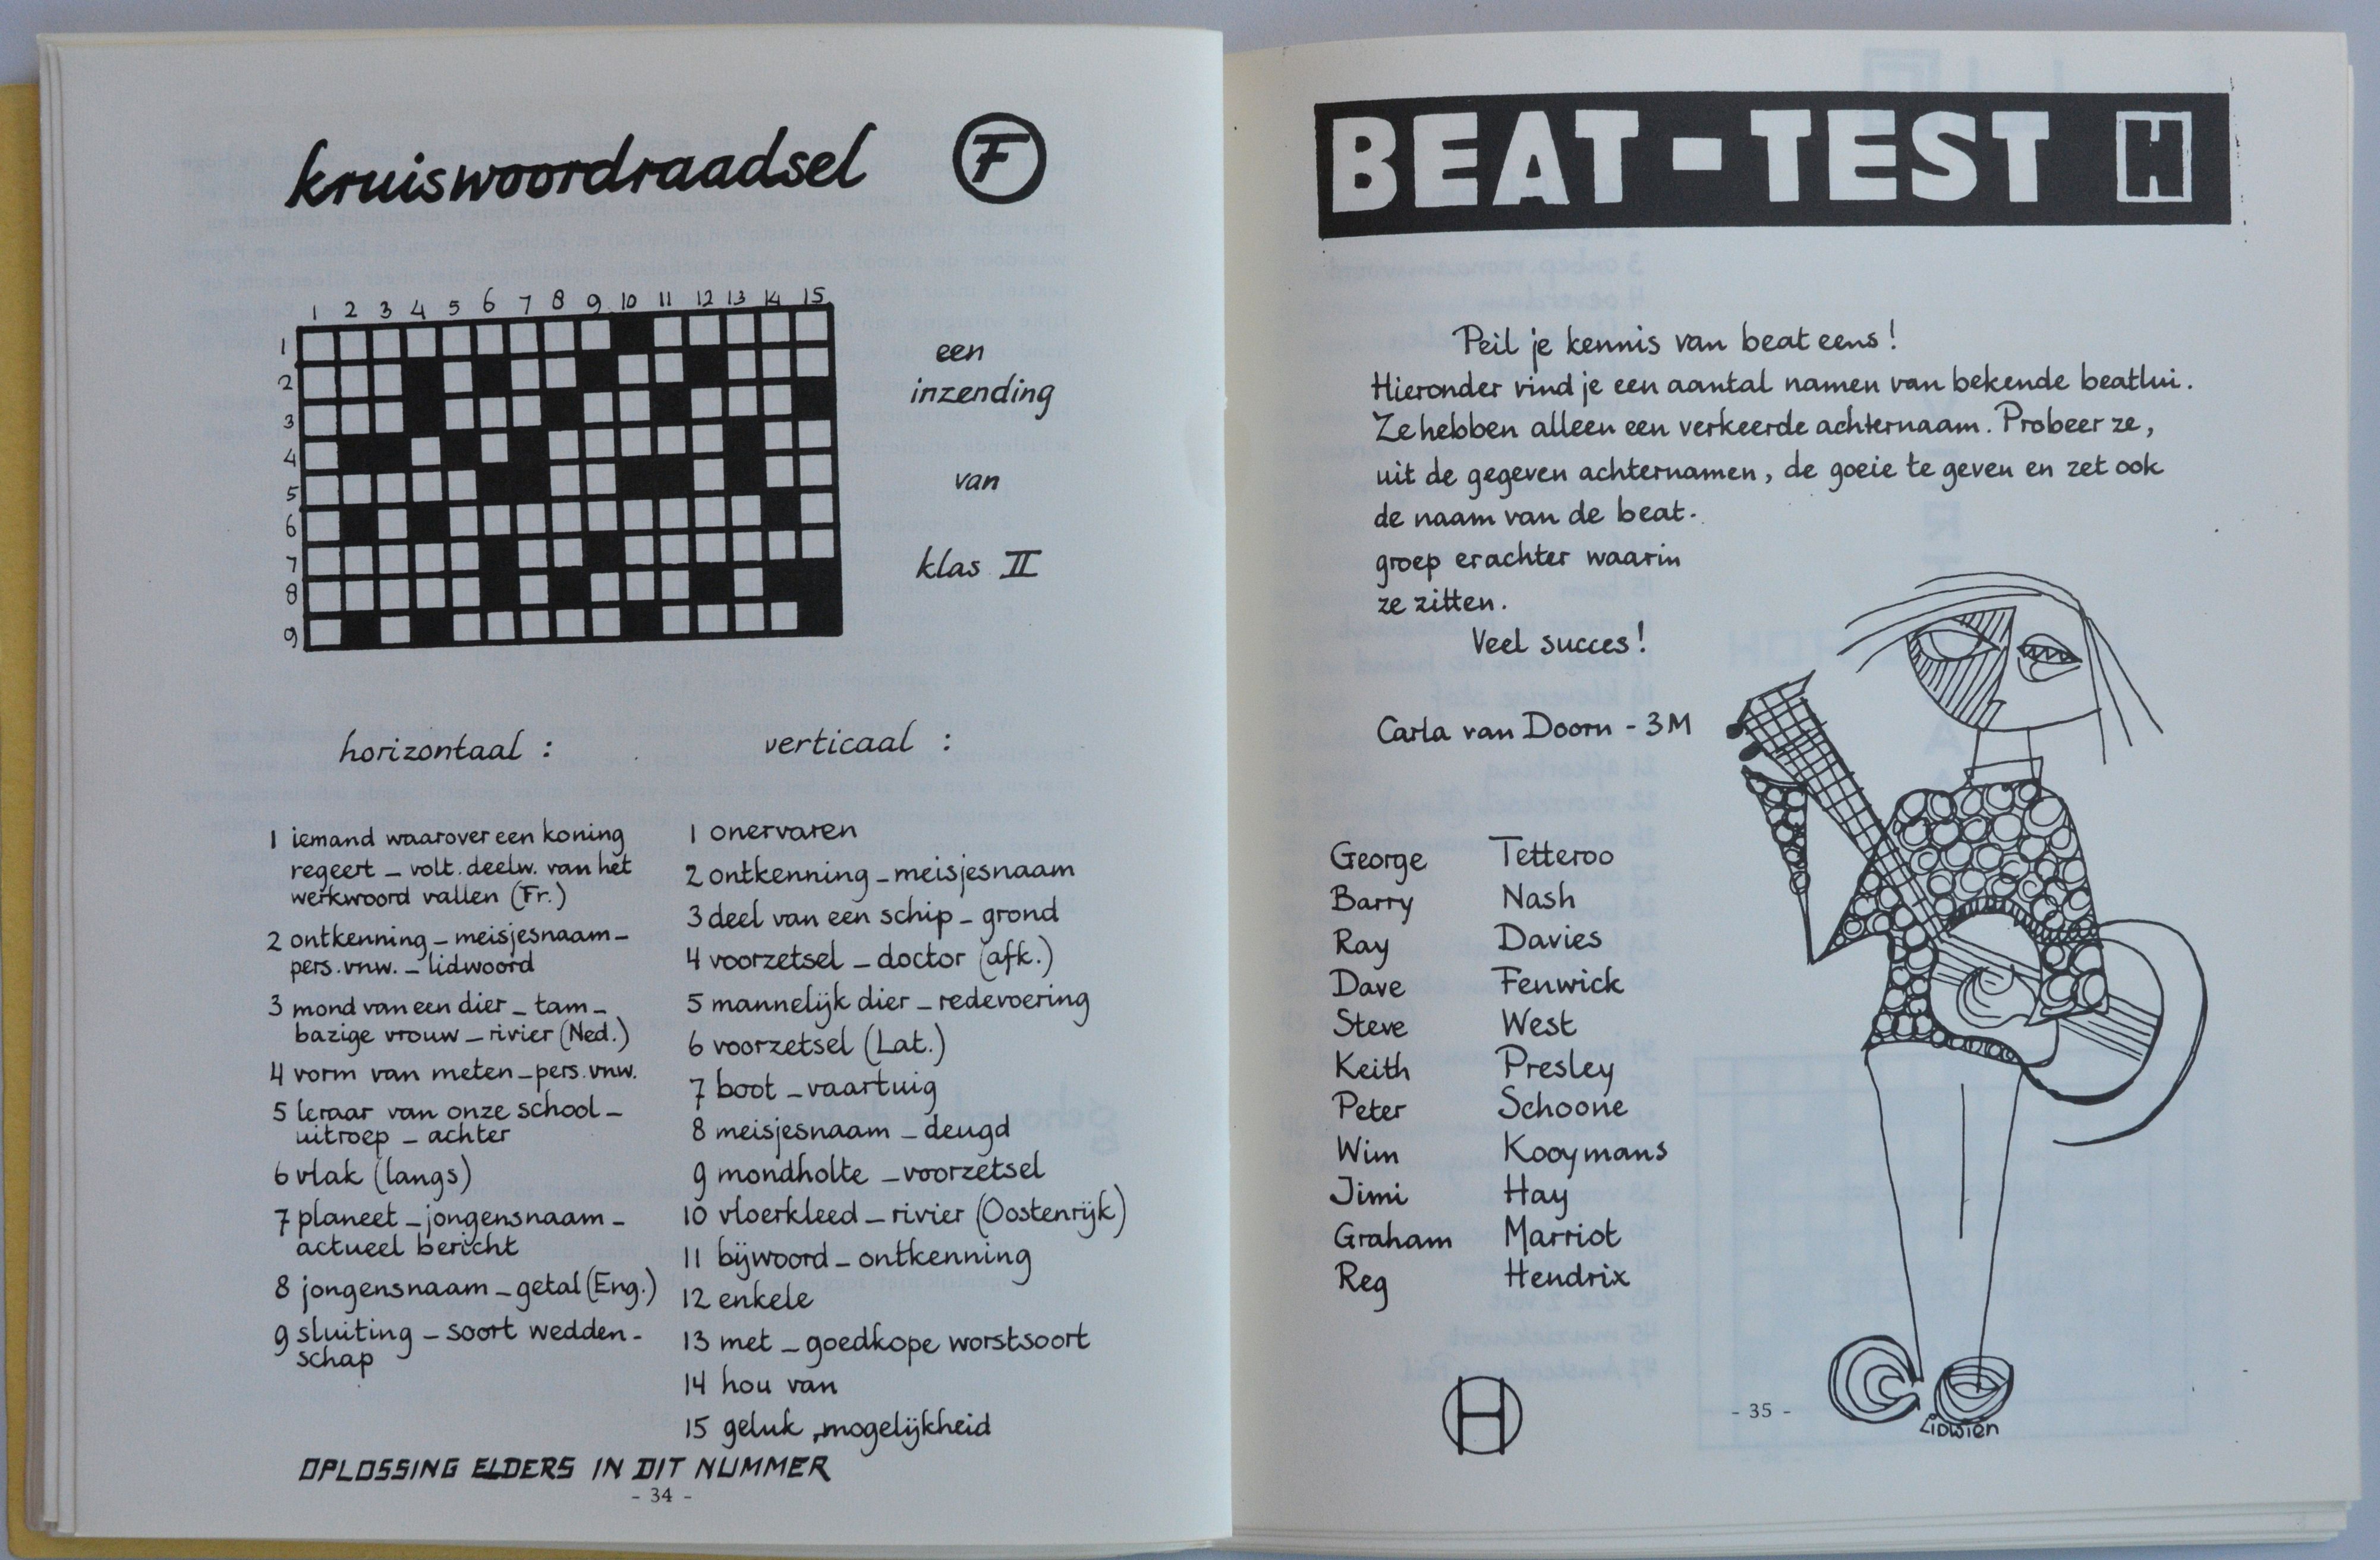 kruiswoordraadsel F
1 2 3 4 5 6 7 8 9 10 11 12 13 14 15
1
2
3
4
5
6
7
8
9
een
inzending
van
klas II
horizontaal :
1 iemand waarover een koning
regeert _ volt. deelw. van het
werkwoord vallen (Fr.)
2 ontkenning _ meisjesnaam _
pers. vnw. _ lidwoord
3 mond van een dier _ tam _
bazige vrouw _ rivier (Ned.)
4 vorm van meten _ pers. vnw.
5 leraar van onze school _
uitroep _ achter
6 vlak (langs)
7 planeet _ jongensnaam _
actueel bericht
8 jongensnaam _ getal (Eng.)
9 sluiting _ soort wedden-
schap
verticaal :
1 onervaren
2 ontkenning _ meisjesnaam
3 deel van een schip _ grond
4 voorzetsel _ doctor (afk.)
5 mannelijk dier _ redevoering
6 voorzetsel (Lat.)
7 boot _ vaartuig
8 meisjesnaam _ deugd
9 mondholte _ voorzetsel
10 vloerkleed _ rivier (Oostenrijk)
11 bijwoord _ ontkenning
12 enkele
13 met _ goedkope worstsoort
14 hou van
15 geluk, mogelijkheid
OPLOSSING ELDERS IN DIT NUMMER
- 34 -
BEAT - TEST H
Peil je kennis van beat eens!
Hieronder vind je een aantal namen van bekende beatlui.
Ze hebben alleen een verkeerde achternaam. Probeer ze,
uit de gegeven achternamen, de goeie te geven en zet ook
de naam van de beat-
groep erachter waarin
ze zitten.
Veel succes!
Carla van Doorn - 3M
George Tetteroo
Barry Nash
Ray Davies
Dave Fenwick
Steve West
Keith Presley
Peter Schoone
Wim Kooymans
Jimi Hay
Graham Marriot
Reg Hendrix
H
- 35 -
Lidwien